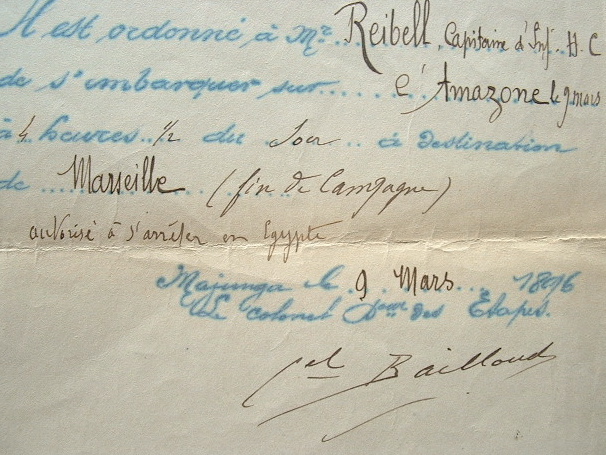 Il est ordonné à Mr. Reibell, Capitaine d'Inf. H.C
de s'embarquer sur l'Amazone le 9 mars
à 4 heures 1/2 du Soir à destination
de Marseille (fin de Campagne)
autorisé à s'arrêter en Egypte
Majunga le 9 Mars 1896
Le colonel Dteur des Etapes.
Cel Bailloud